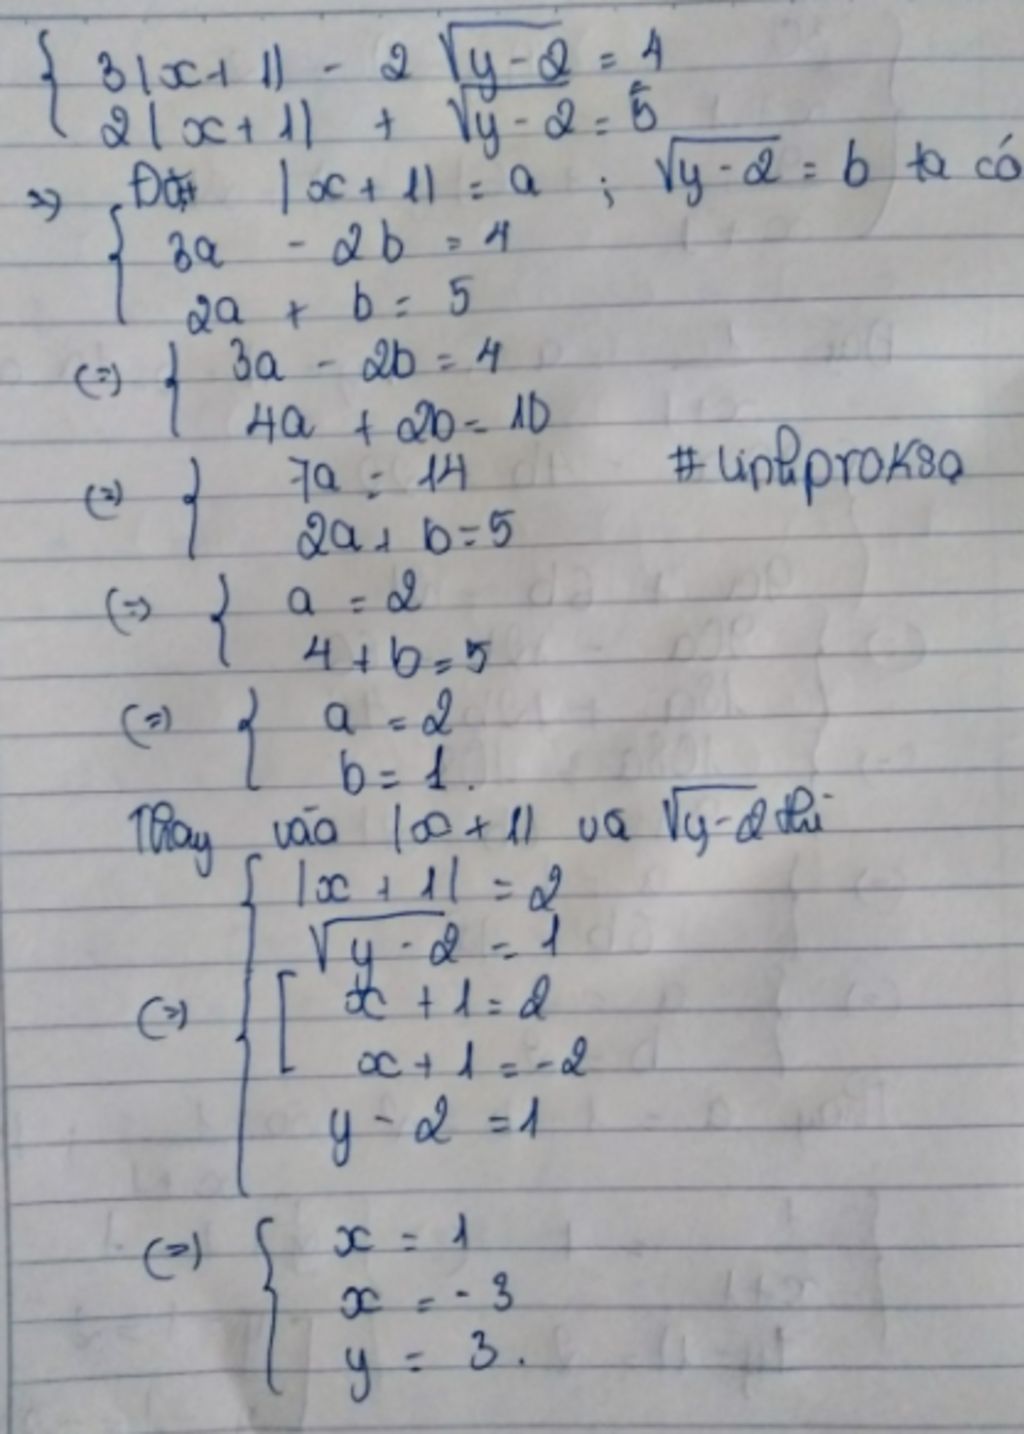 3|x+1| - 2√y-2 = 4
2|x+1| + √y-2 = 5
=> Đặt |x+1| = a ; √y-2 = b ta có
3a - 2b = 4
2a + b = 5
(=) 3a - 2b = 4
4a + 2b = 10
(=) 7a = 14 #linhproksa
2a + b = 5
(=) a = 2
4 + b = 5
(=) a = 2
b = 1.
Thay vào |x+1| và √y-2 thì
|x+1| = 2
√y-2 = 1
(=) x + 1 = 2
x + 1 = -2
y - 2 = 1
(=) x = 1
x = -3
y = 3.